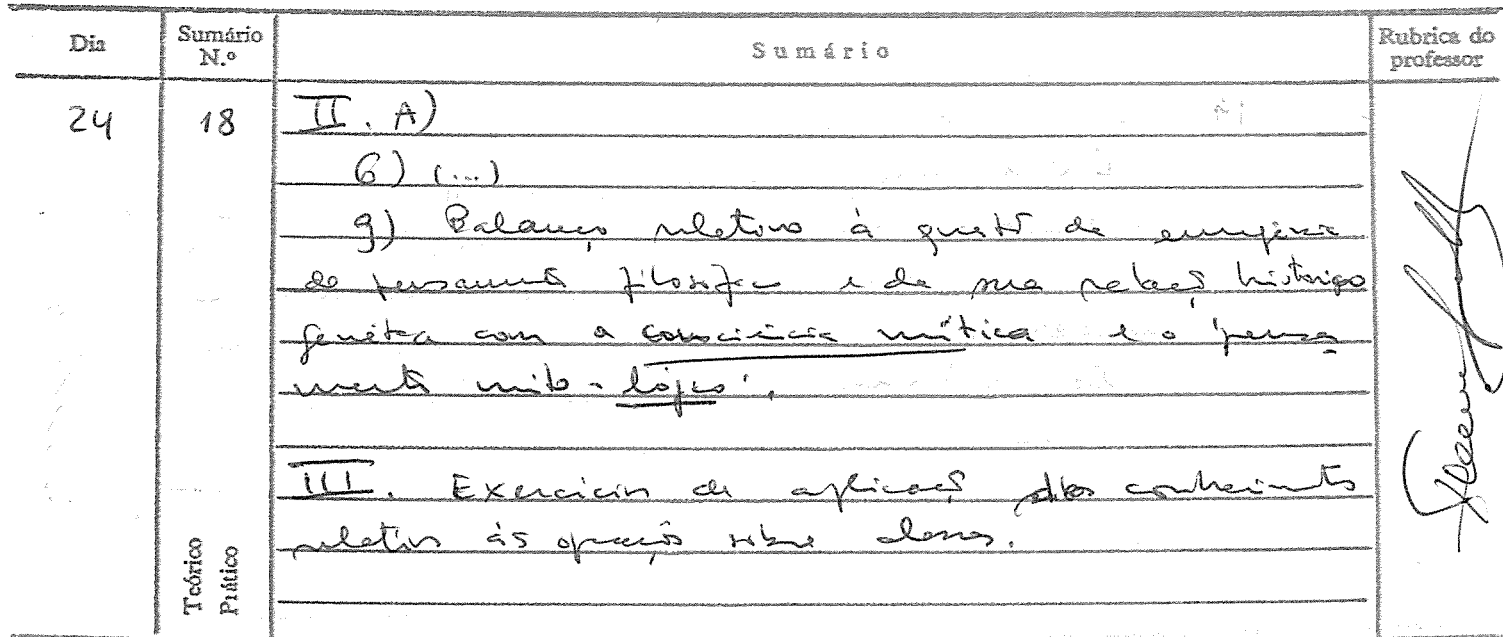 Dia
Sumário N.º
Sumário
Rubrica do professor
24
18
II. A)
6) (...)
g) Balanço relativo à questão da emergência
do pensamento filosófico e da sua relação histórico
genética com a consciência mítica e o 'pensa
mento mito-lógico'.
III. Exercícios de aplicação dos conhecimentos
relativos às operações sobre classes.
Teórico
Prático